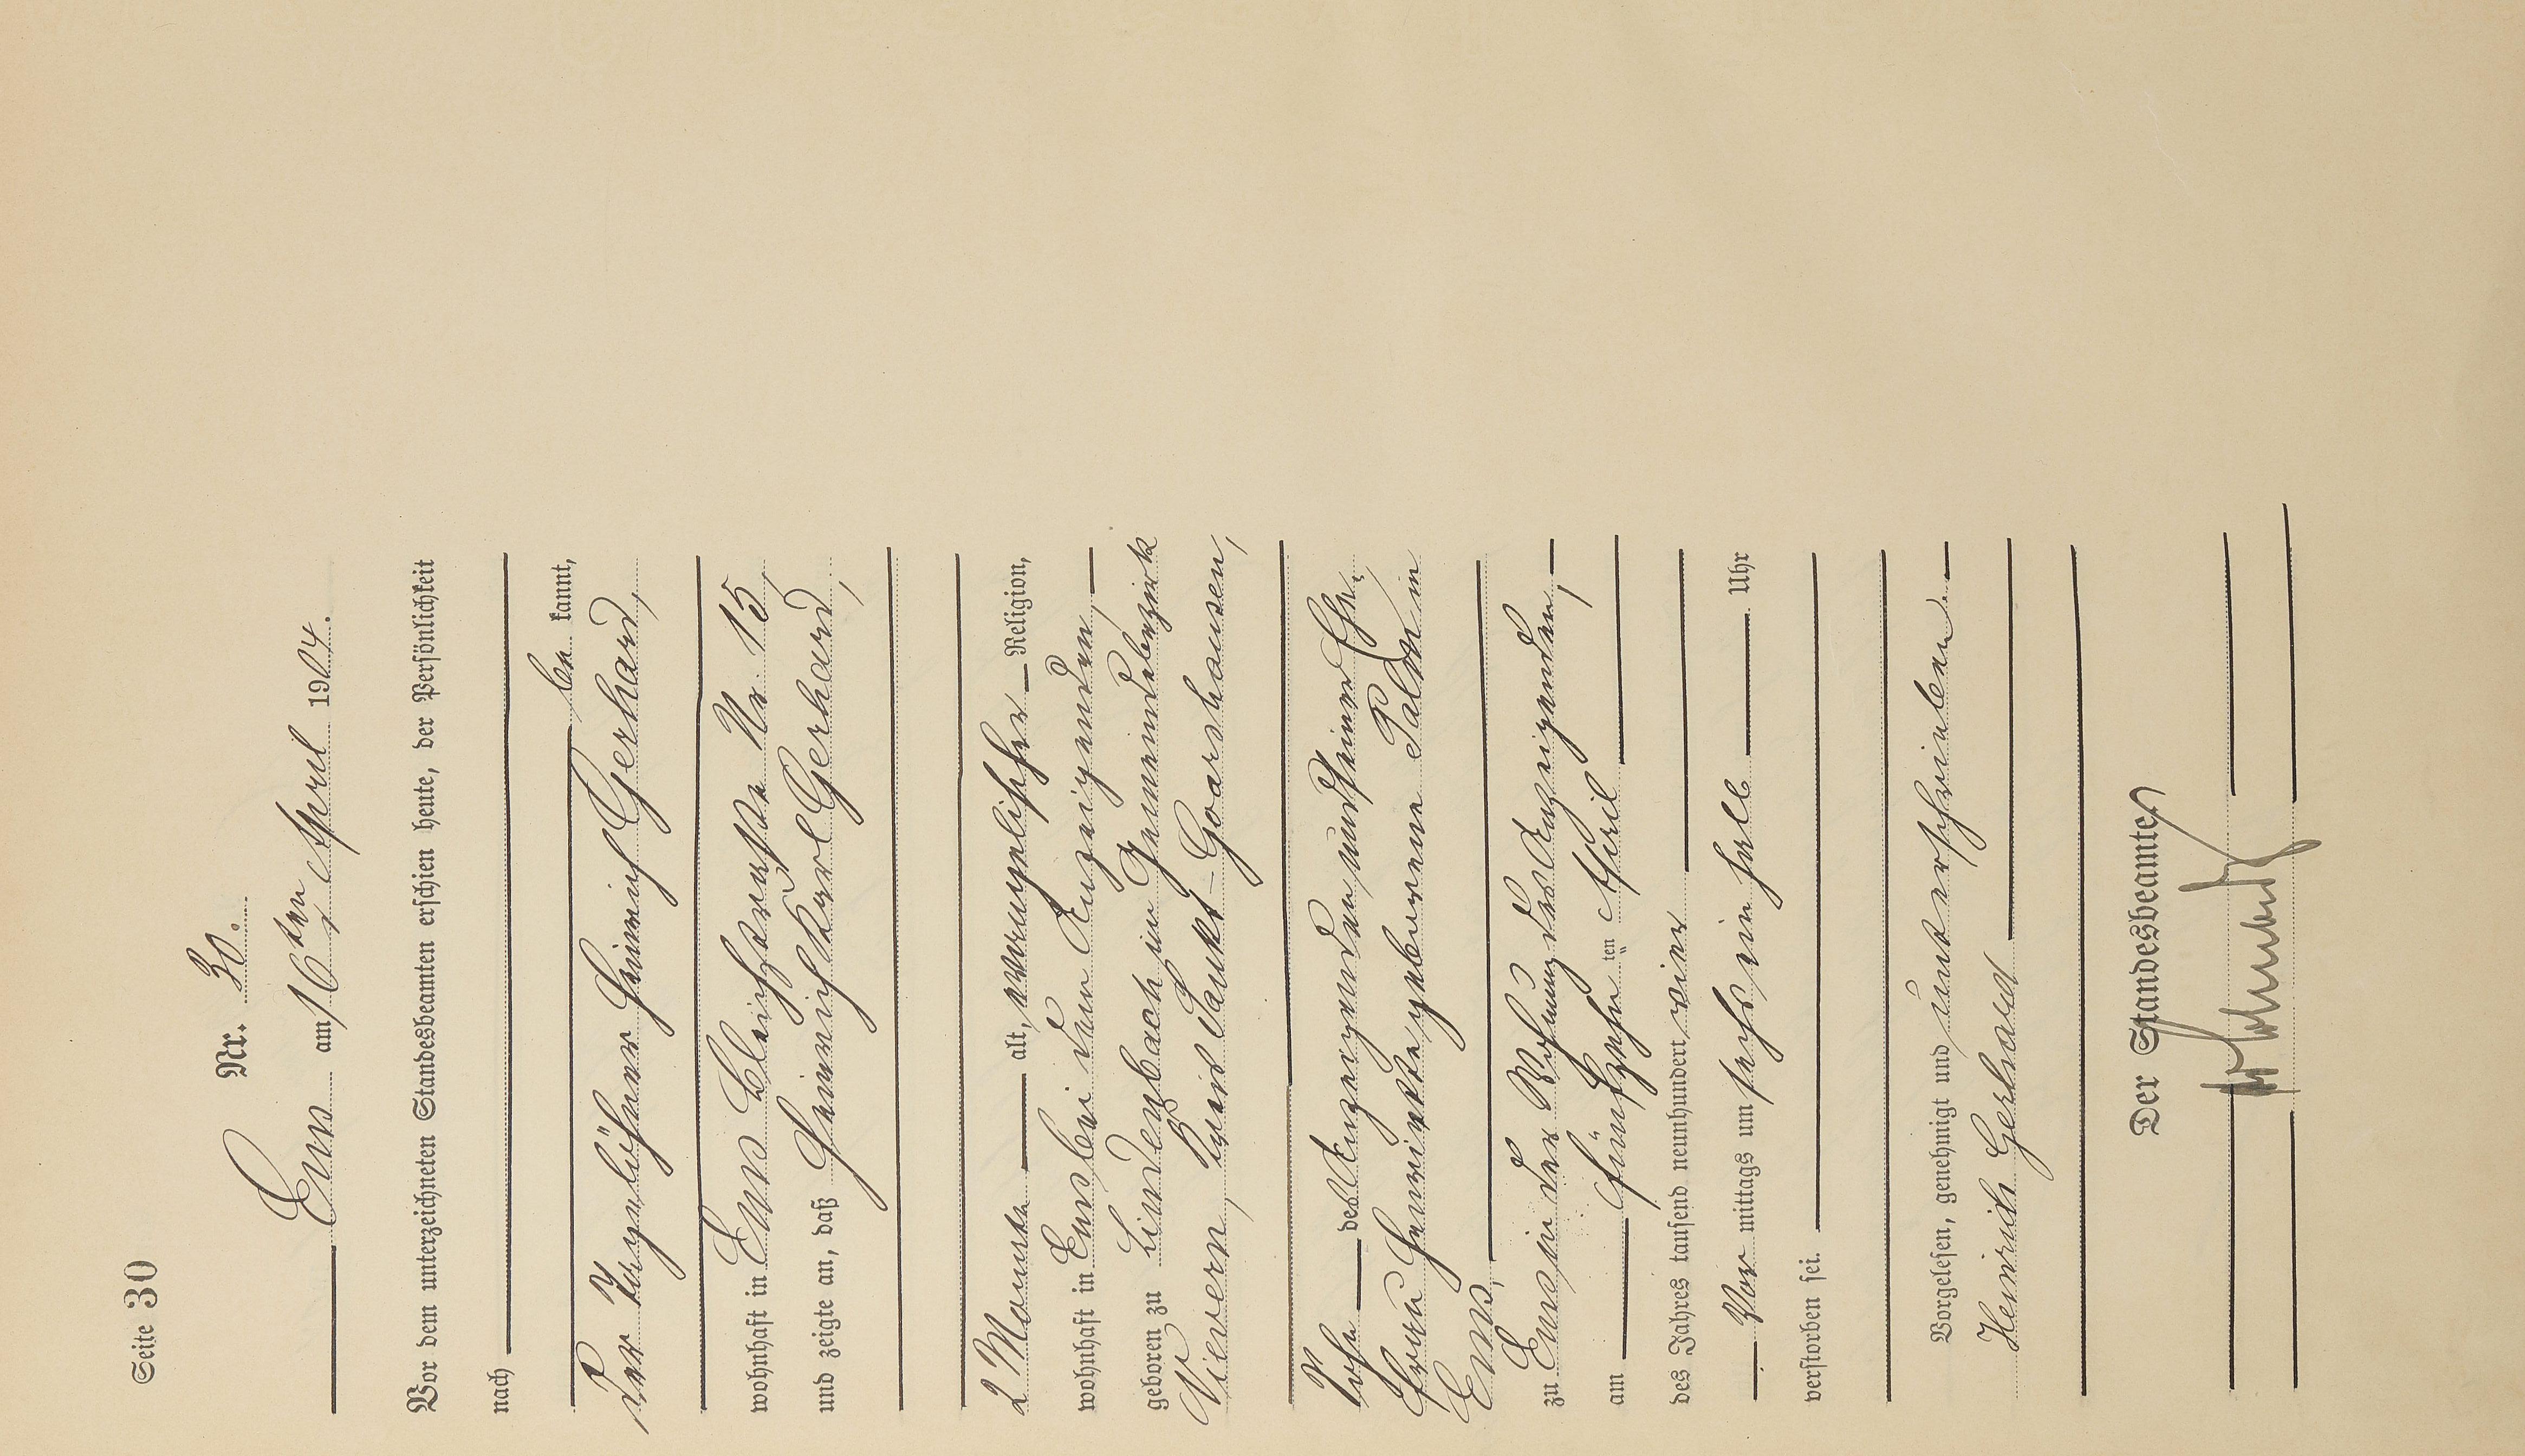 Seite 30
Nr. 30.
Ems am 16ten April 1904.
Vor dem unterzeichneten Standesbeamten erschien heute, der Persönlichkeit
nach
be kannt,
der Tagelöhner Heinrich Gerhard,
wohnhaft in Ems Bleichstraße Nr. 15,
und zeigte an, daß Heinrich Karl Gerhard,
2 Monate alt, evangelischer Religion,
wohnhaft in Ems bei dem Anzeigenden,
geboren zu Lindenbach im Gemeindebezirk
Nievern, Kreis Sankt-Goarshausen,
Sohn des Anzeigenden und seiner Ehe-
frau Henriette geborene Palm in
Ems,
zu Ems in der Wohnung des Anzeigenden,
am fünfzehn ten April
des Jahres tausend neunhundert vier
Vor mittags um sechs ein halb Uhr
verstorben sei.
Vorgelesen, genehmigt und unterschrieben.
Heinrich Gerhard
Der Standesbeamte